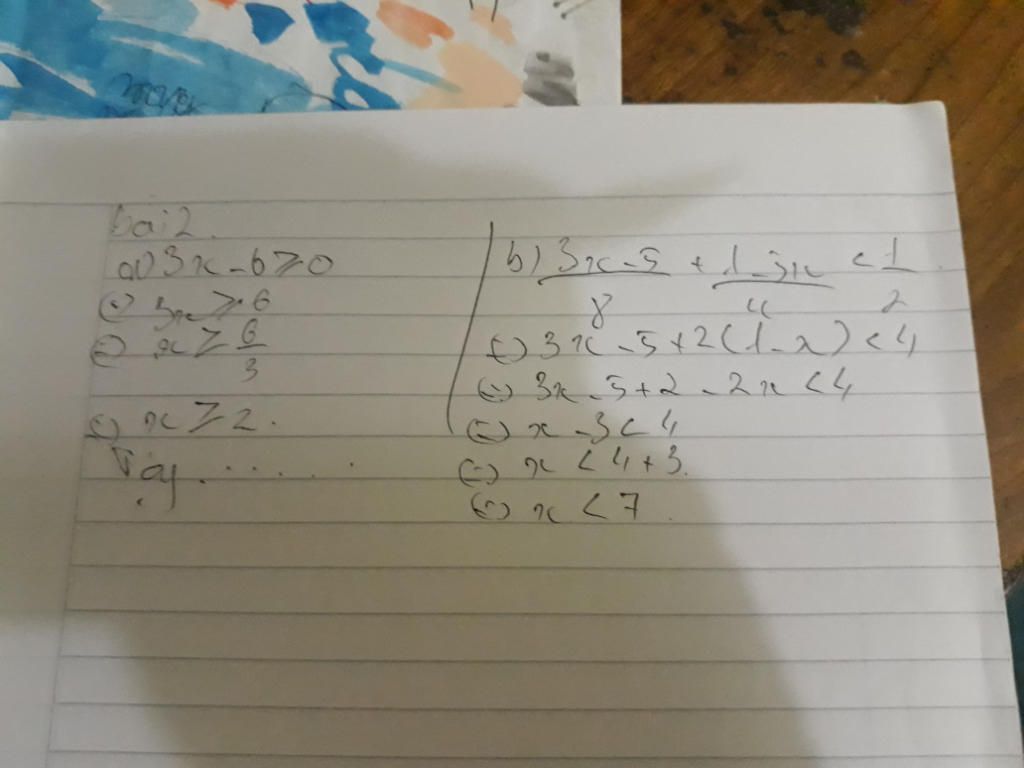 bai 2.
a) 3x - 6 ≥ 0
⇔ 3x ≥ 6
⇔ x ≥ 6/3
⇔ x ≥ 2.
Vậy . . . . . . .
b) 3x - 5/8 + 1 - 3x/4 < 1/2.
⇔ 3x - 5 + 2(1 - x) < 4
⇔ 3x - 5 + 2 - 2x < 4
⇔ x - 3 < 4
⇔ x < 4 + 3.
⇔ x < 7.